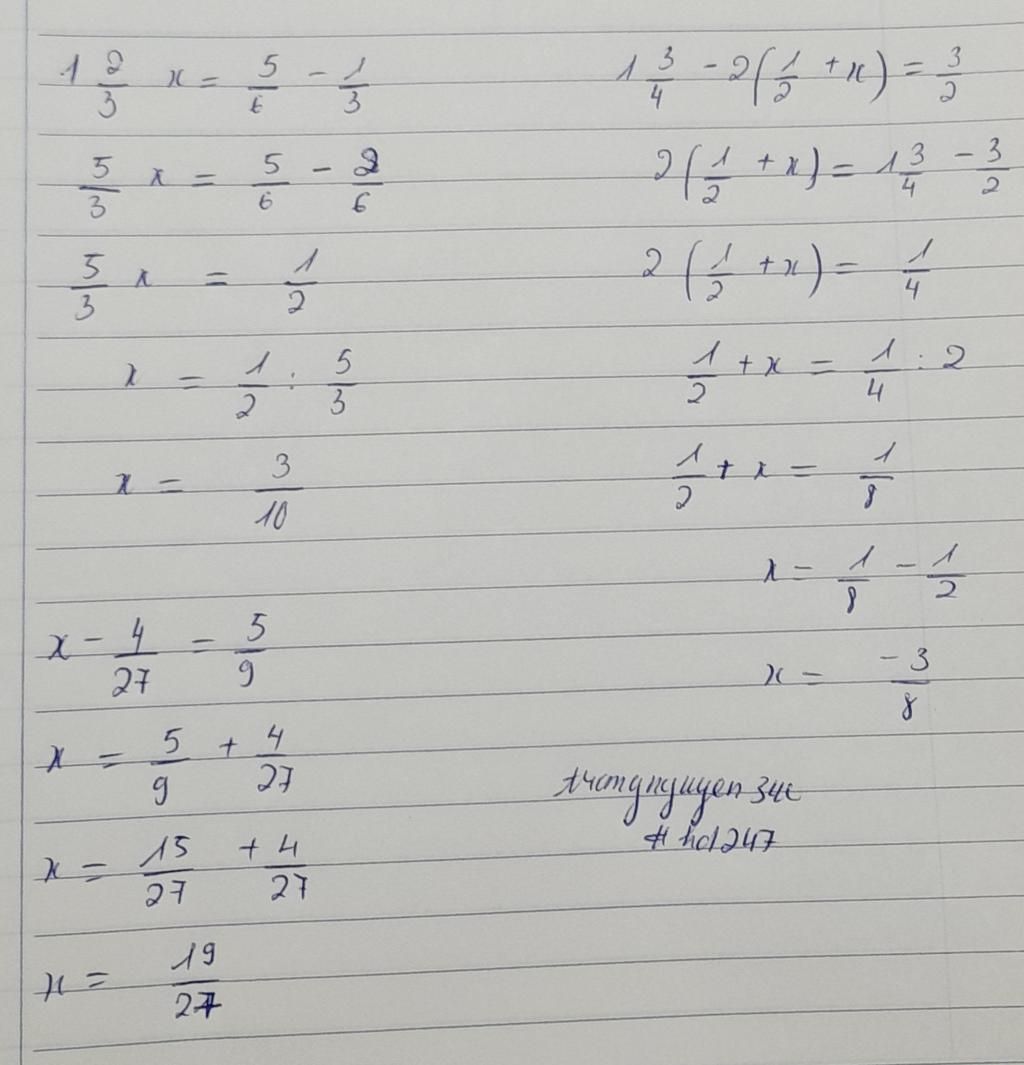 1 2/3 x = 5/6 - 1/3
5/3 x = 5/6 - 2/6
5/3 x = 1/2
x = 1/2 : 5/3
x = 3/10
x - 4/27 = 5/9
x = 5/9 + 4/27
x = 15/27 + 4/27
x = 19/27
1 3/4 - 2(1/2 + x) = 3/2
2(1/2 + x) = 1 3/4 - 3/2
2(1/2 + x) = 1/4
1/2 + x = 1/4 : 2
1/2 + x = 1/8
x = 1/8 - 1/2
x = -3/8
# hd247